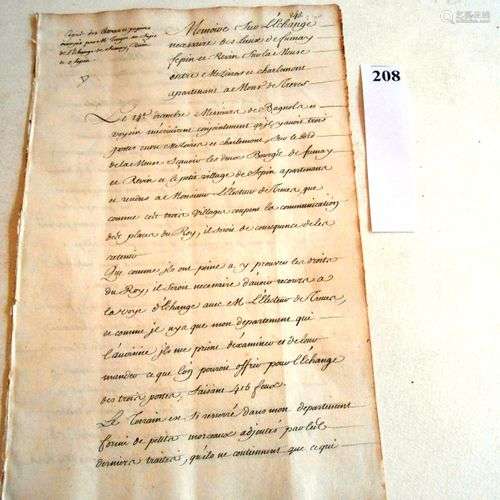 208
Memoire Sur l'Echange
necessaire des lieux de fumay
fepin et Revin Sur la Meuse
entre Mezieres et charlemont
appartenant a Monsr de Treves
Le 14e decembre Messieurs de Bagnols et
voysin m'ecrivirent conjointement qu'il y avoit trois
postes entre Mezieres et charlemont Sur le bord
de la Meuse Sçavoir les deux Bourgs de fumay
et Revin et le petit village de fepin apartenans
a Monsieur L'Electeur de Treves que
comme ces trois villages coupent la communication
des places du Roy, il seroit de consequence de les
retenir
Que comme ils ont peine a y prouver les droits
du Roy, il seroit necessaire d'avoir recours a
la voye d'Echange avec M. L'Electeur de Treves,
et comme je n'ay que mon departement qui
l'avoisine, ils me prient d'examiner et de leur
mander ce que l'on pouroit offrir pour l'Echange
des trois postes, faisant 416 feux.
Le Terrain est Si resserré dans mon departement
formé de petits morceaux adjoutés par les
derniers traités, qu'ils ne contiennent que ce qui